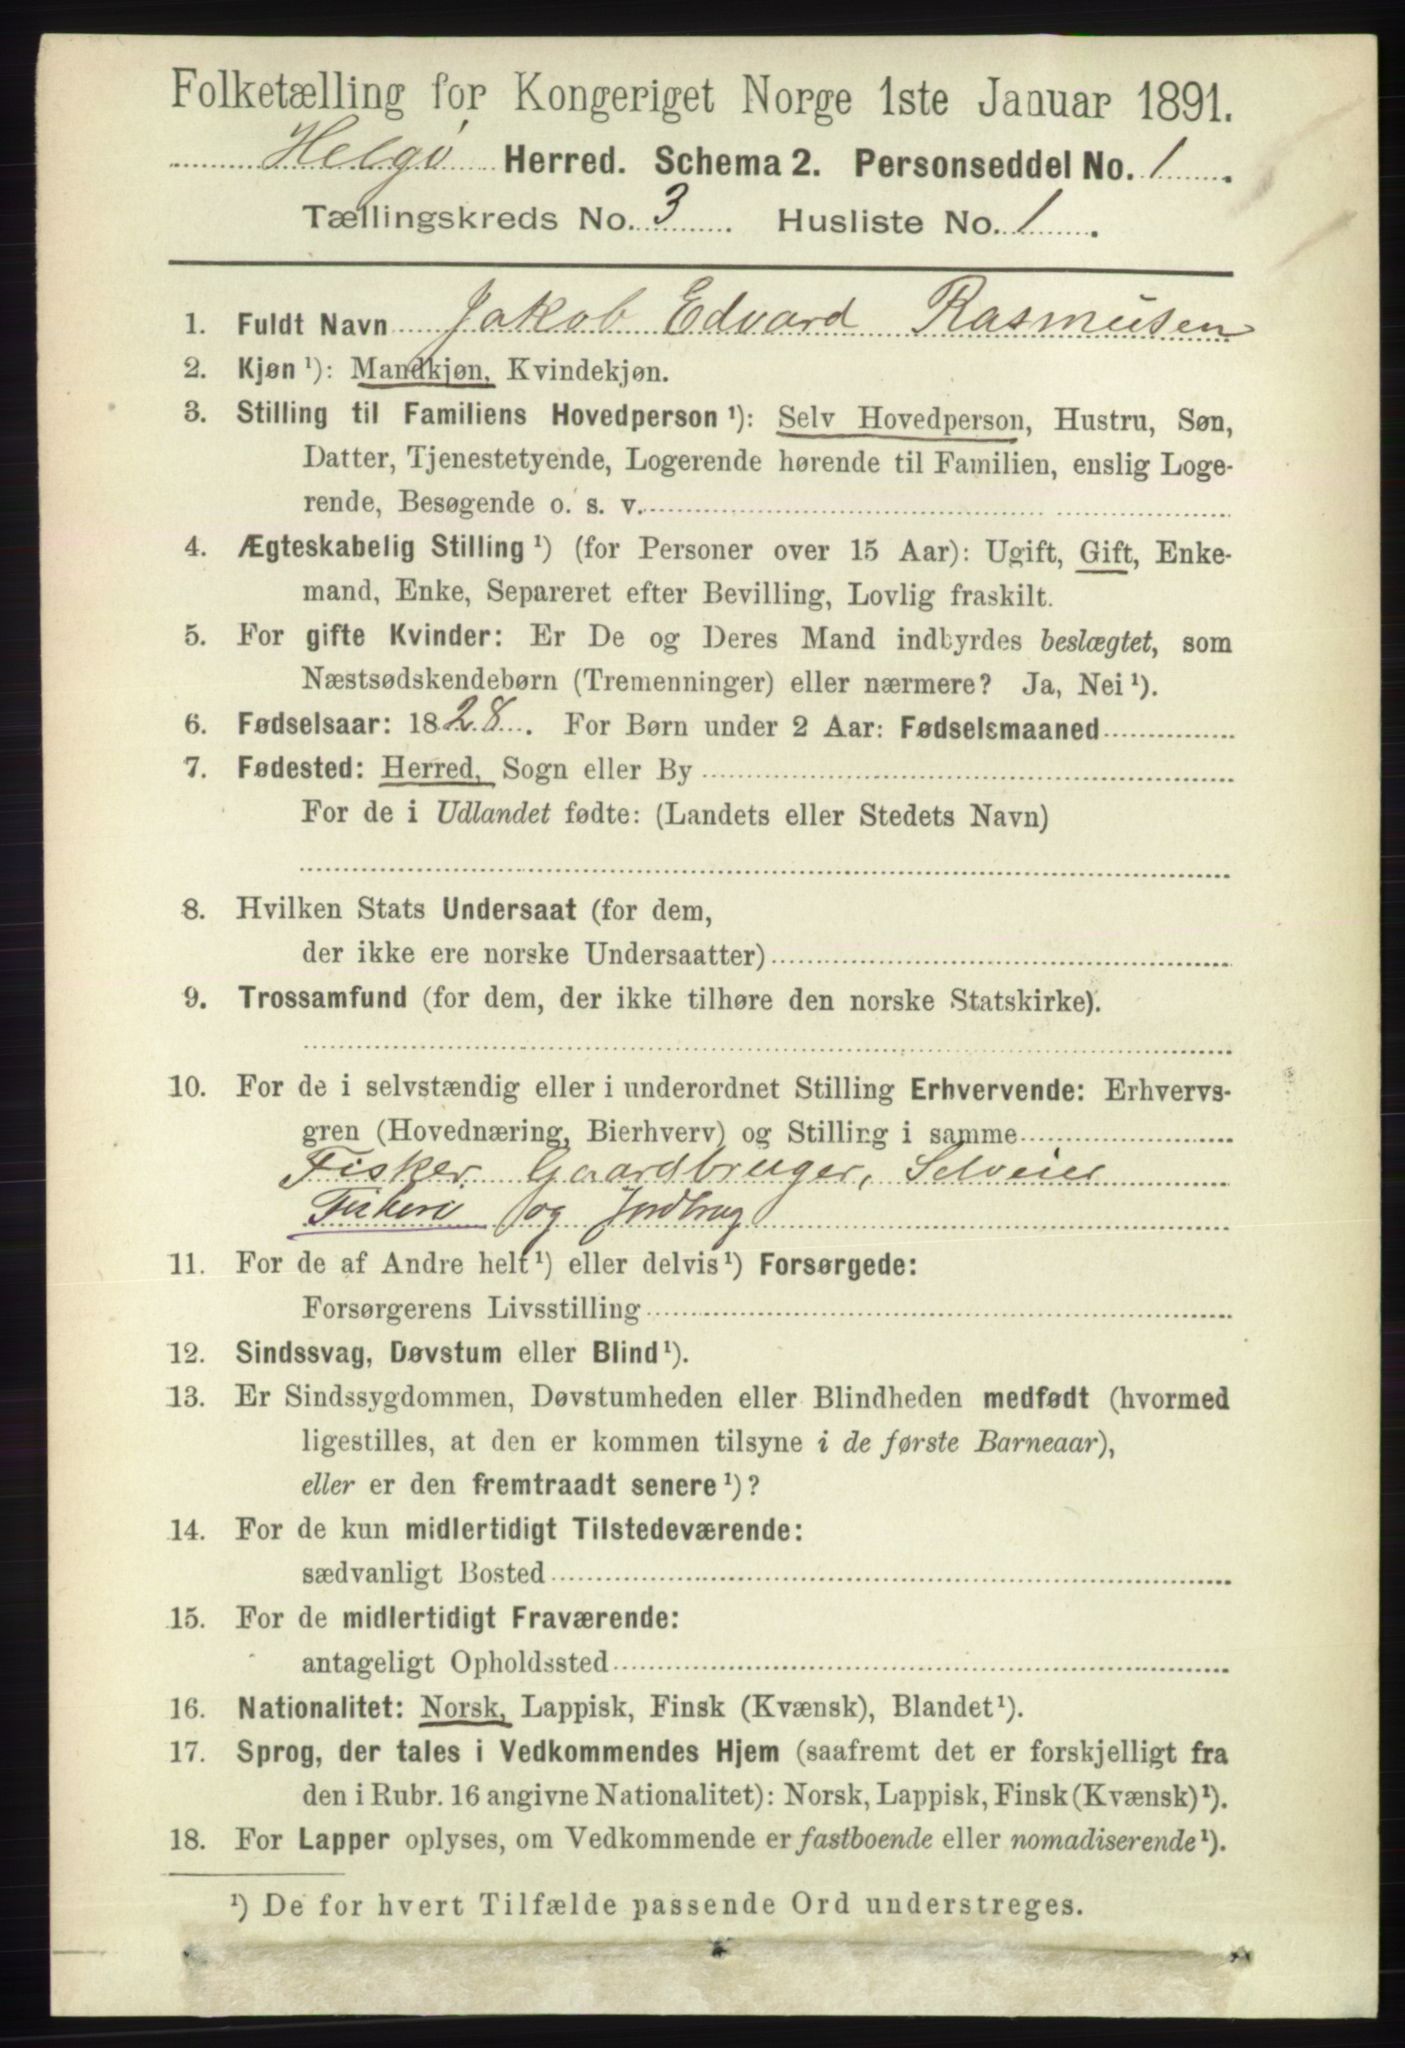 Folketælling for Kongeriget Norge 1ste Januar 1891.
Helgø Herred. Schema 2. Personseddel No. 1.
Tællingskreds No. 3. Husliste No. 1.
1. Fuldt Navn Jakob Edvard Rasmusen
2. Kjøn ¹): Mandkjøn, Kvindekjøn.
3. Stilling til Familiens Hovedperson ¹): Selv Hovedperson, Hustru, Søn,
Datter, Tjenestetyende, Logerende hørende til Familien, enslig Loge-
rende, Besøgende o. s. v.
4. Ægteskabelig Stilling ¹) (for Personer over 15 Aar): Ugift, Gift, Enke-
mand, Enke, Separeret efter Bevilling, Lovlig fraskilt.
5. For gifte Kvinder: Er De og Deres Mand indbyrdes beslægtet, som
Næstsødskendebørn (Tremenninger) eller nærmere? Ja, Nei ¹).
6. Fødselsaar: 1828. For Børn under 2 Aar: Fødselsmaaned
7. Fødested: Herred, Sogn eller By
For de i Udlandet fødte: (Landets eller Stedets Navn)
8. Hvilken Stats Undersaat (for dem,
der ikke ere norske Undersaatter)
9. Trossamfund (for dem, der ikke tilhøre den norske Statskirke).
10. For de i selvstændig eller i underordnet Stilling Erhvervende: Erhvervs-
gren (Hovednæring, Bierhverv) og Stilling i samme
Fisker. Gaardbruger, Selveier
Fiskeri og Jordbrug
11. For de af Andre helt ¹) eller delvis ¹) Forsørgede:
Forsørgerens Livsstilling
12. Sindssvag, Døvstum eller Blind ¹).
13. Er Sindssygdommen, Døvstumheden eller Blindheden medfødt (hvormed
ligestilles, at den er kommen tilsyne i de første Barneaar),
eller er den fremtraadt senere ¹)?
14. For de kun midlertidigt Tilstedeværende:
sædvanligt Bosted
15. For de midlertidigt Fraværende:
antageligt Opholdssted
16. Nationalitet: Norsk, Lappisk, Finsk (Kvænsk), Blandet ¹).
17. Sprog, der tales i Vedkommendes Hjem (saafremt det er forskjelligt fra
den i Rubr. 16 angivne Nationalitet): Norsk, Lappisk, Finsk (Kvænsk) ¹).
18. For Lapper oplyses, om Vedkommende er fastboende eller nomadiserende ¹).
¹) De for hvert Tilfælde passende Ord understreges.